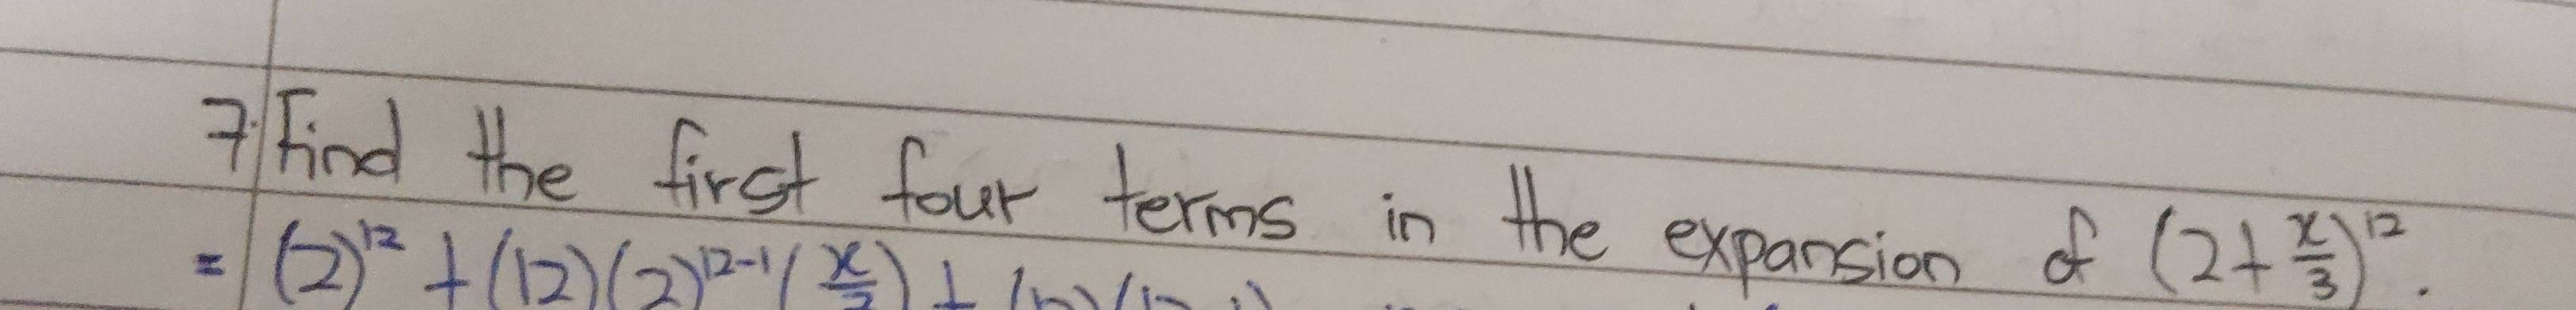 7. Find the first four terms in the expansion of (2+x/3)^12.
= (2)^12 + (12)(2)^12-1 (x/3) +